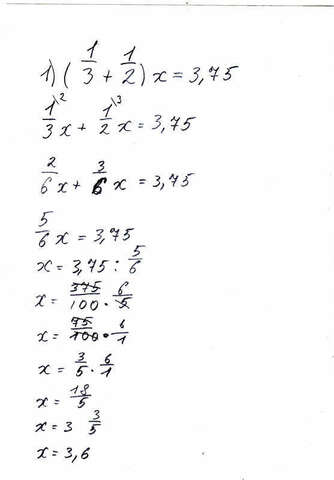 1) (1/3 + 1/2) x = 3,75
1\2/3 x + 1\3/2 x = 3,75
2/6 x + 3/6 x = 3,75
5/6 x = 3,75
x = 3,75 : 5/6
x = 375/100 · 6/5
x = 75/100 · 6/1
x = 3/5 · 6/1
x = 18/5
x = 3 3/5
x = 3,6